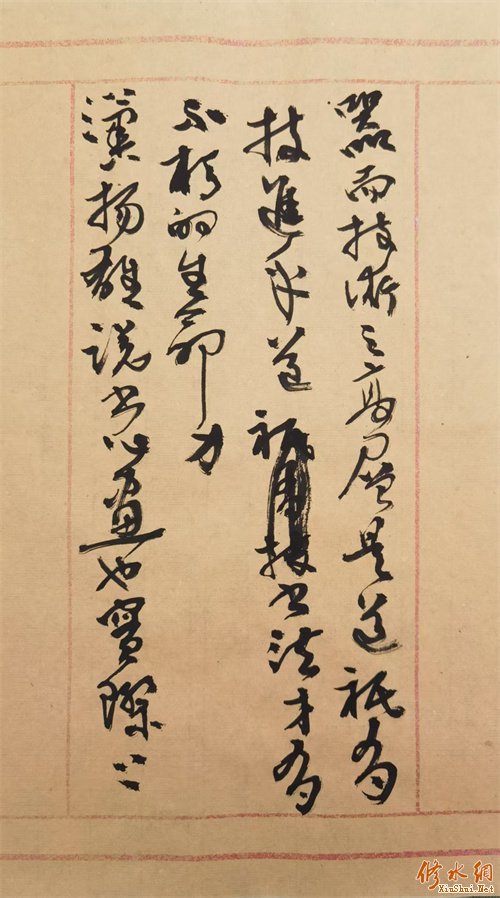 器而技術之高層是道祇有
技進乎道祇技書法才有
不朽的生命力
漢揚雄說書心畫也實際上
修水網
XiuShui.Net